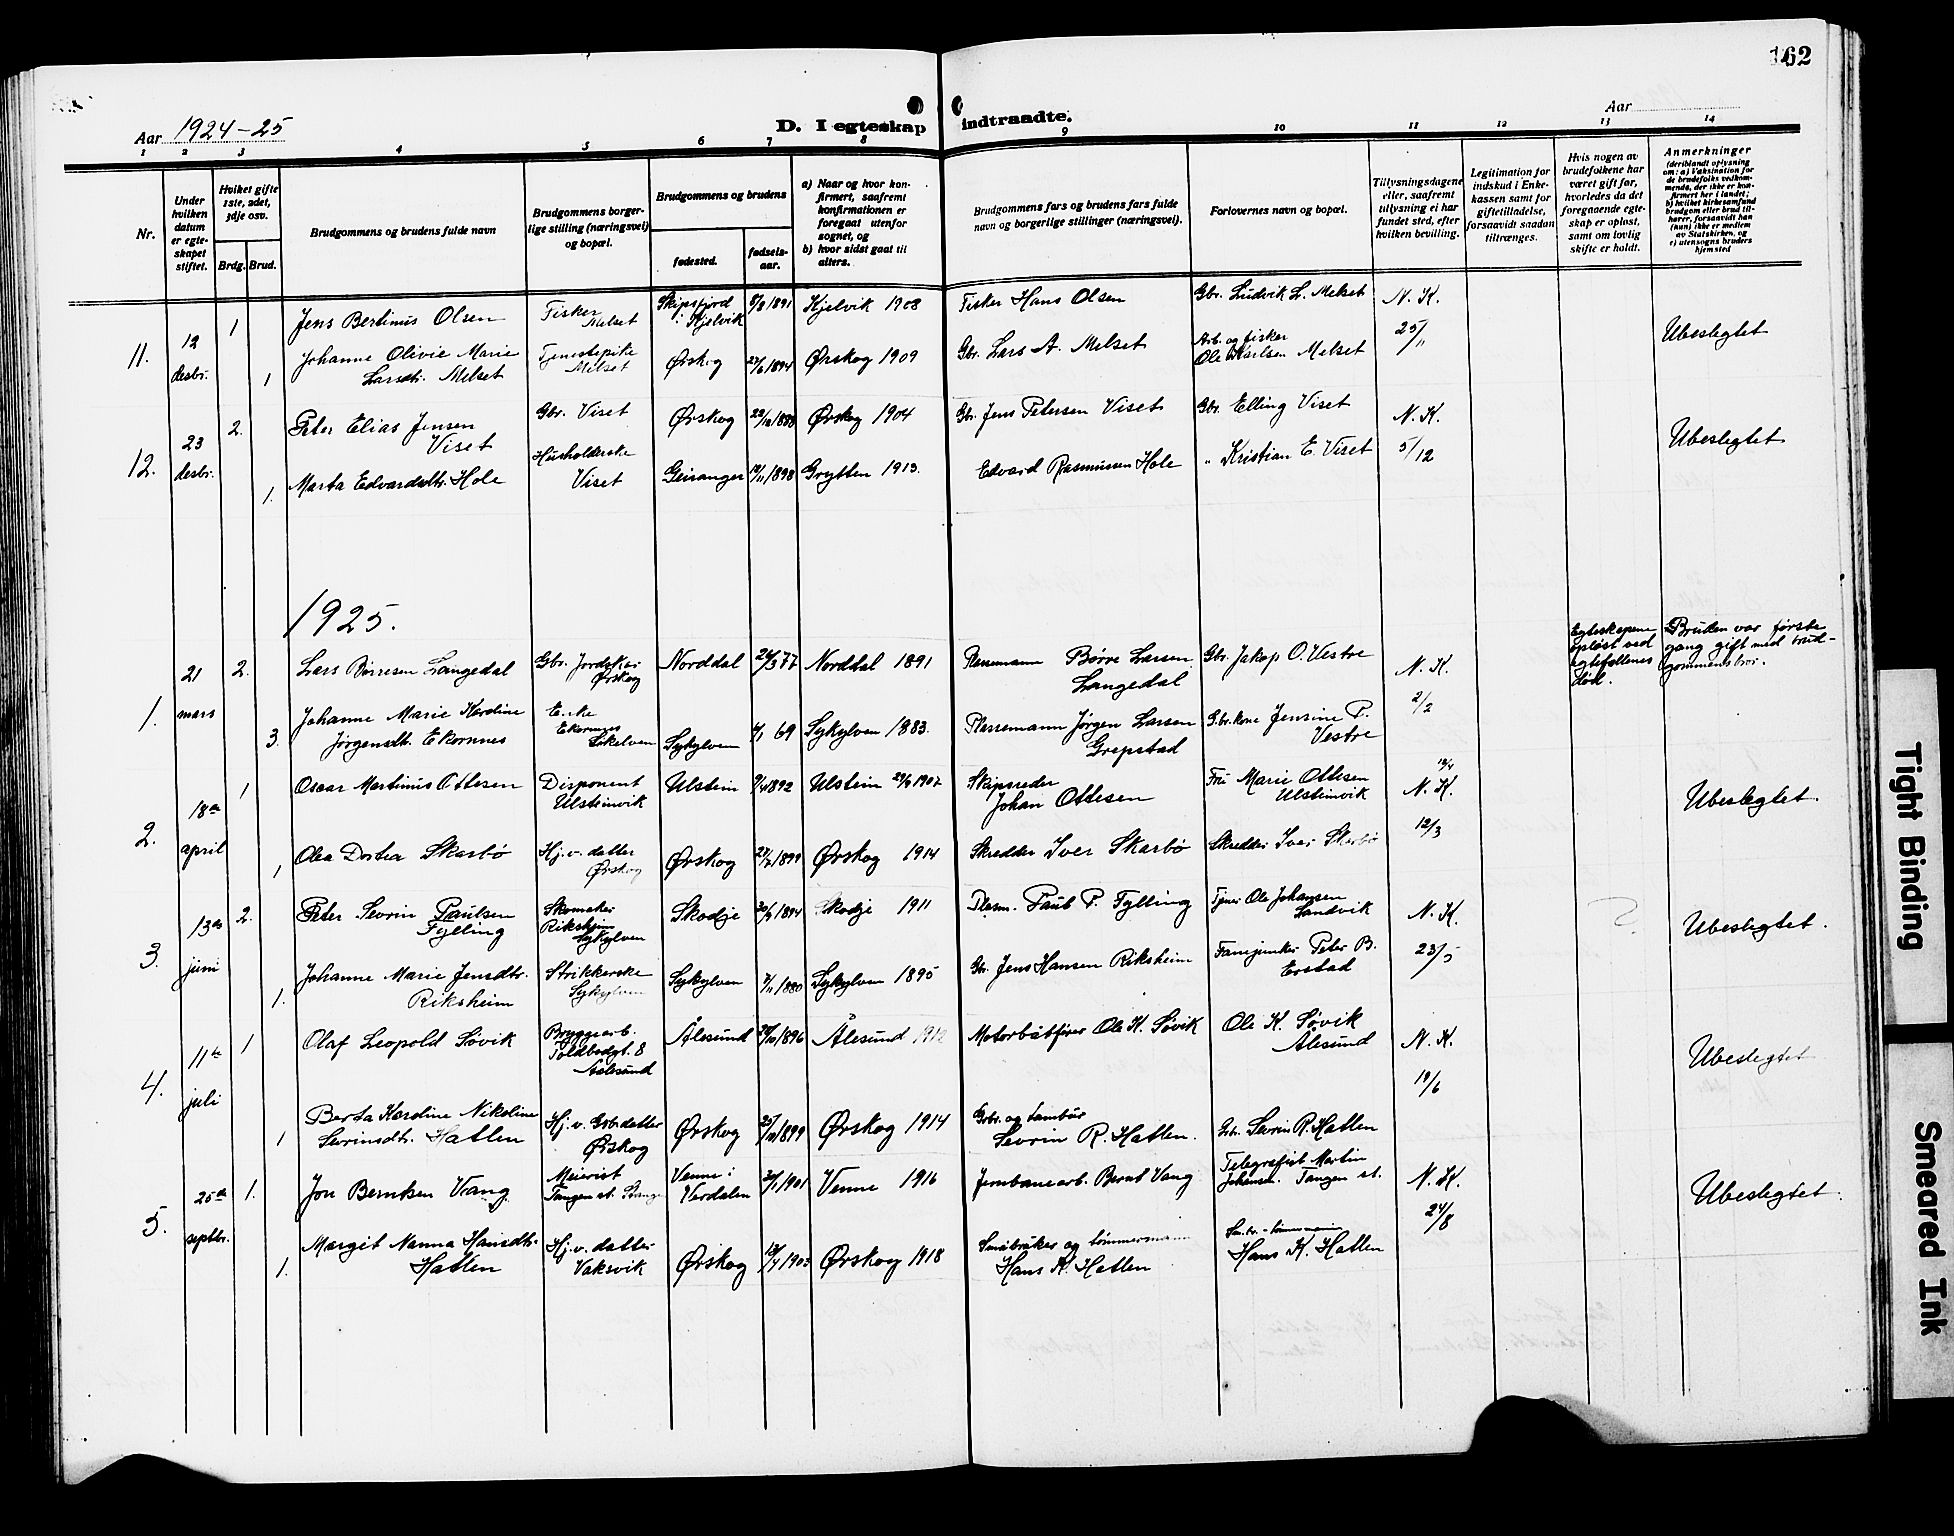 162
Aar 1924-25
D. I egteskap indtraadte.
Aar
1 2 3 4 5 6 7 8 9 10 11 12 13 14
Nr.
Under hvilken datum er egteskapet stiftet.
Hvilket gifte 1ste, 2det, 3dje osv.
Brdg. Brud.
Brudgommens og brudens fulde navn
Brudgommens borgerlige stilling (næringsvei) og bopæl.
Brudgommens og brudens
fødested.
fødselsaar.
a) Naar og hvor konfirmert, saafremt konfirmationen er foregaat utenfor sognet, og
b) hvor sidst gaat til alters.
Brudgommens fars og brudens fars fulde navn og borgerlige stillinger (næringsvei).
Forlovernes navn og bopæl.
Tillysningsdagene eller, saafremt tillysning ei har fundet sted, efter hvilken bevilling.
Legitimation for indskud i Enkekassen samt for giftetilladelse, forsaavidt saadan tiltrænges.
Hvis nogen av brudefolkene har været gift før, hvorledes da det foregaaende egteskap er opløst, samt om lovlig skifte er holdt.
Anmerkninger
(deriblandt oplysning om: a) Vaksination for de brudefolks vedkommende, der ikke er konfirmert her i landet; b) hvilket kirkesamfund brudgom eller brud tilhører, forsaavidt han (hun) ikke er medlem av Statskirken, og c) utensogns bruders hjemsted
11. 12 desbr. 1
Jens Bertinus Olsen Fisker Melset Skipsfjord i Kjelvik 5/8 1891 Kjelvik 1908 Fisker Hans Olsen Gbr. Ludvik L. Melset N. K. 25/11 Ubeslegtet
1 Johanne Olivie Marie Larsdtr. Melset Tjenestepike Melset Ørskog 1894 Ørskog 1909 Gbr. Lars A. Melset Arb. og fisker Ole Karlsen Melset
12. 23 desbr. 2.
Peter Elias Jensen Viset Gbr. Viset Ørskog Ørskog 1904 Gbr. Jens Petersen Viset Gbr. Elling Viset N. K. 5/12 Ubeslegtet
1. Marta Edvardsdtr. Hole Husholderske Viset Geiranger 1898 Grytten 1913. Edvard Rasmussen Hole " Kristian E. Viset
1925.
1. 21 mars 2.
Lars Børresen Langedal Gbr. Ørskog Norddal 77 Norddal 1891 Plassemann Børre Larsen Langedal Gbr. Jakop O. Vestre N. K. 2/2 Egteskapene opløst ved egtefellenes død. Bruden var første gang gift med brudgommens bror.
3. Johanne Marie Kardine Jørgensdtr. Ekornnes Enke Ekornnes Sykylven 69 Sykylven 1883. Plassemann Jørgen Larsen Grepstad Gbr.kone Jensine P. Vestre
2. 18de april 1
Oscar Martinus Ottesen Disponent Ulsteinvik Ulstein 1892 Ulstein 1907 Skipsreder Johan Ottesen Fru Marie Ottesen Ulsteinvik N. K. 12/3 Ubeslegtet.
1 Olea Dortea Skarbø Hj.v. datter Ørskog Ørskog 1899 Ørskog 1914 Skredder Iver Skarbø Skredder Iver Skarbø
3. 13de juni 2.
Peter Sevrin Paulsen Fylling Skomaker Riksheim Sykylven Skodje 1894 Skodje 1911 Plasm. Paul P. Fylling Ole Johansen Sandvik N. K. 23/5 Ubeslegtet.
1. Johanne Marie Jensdtr. Riksheim Strikkerske Sykylven Sykylven 1880 Sykylven 1895 Gbr. Jens Hansen Riksheim Fanejunker Peter B. Erstad
4. 11te juli 1
Olaf Leopold Søvik Bryggearb. Toldbodgt. 8 Aalesund Ålesund 1896 Ålesund 1912 Motorbåtfører Ole K. Søvik Ole K. Søvik Ålesund N. K. 19/6 Ubeslegtet
1 Berta Kardine Nikoline Sevrinsdtr. Hatlen Hj.v. Gbr.datter Ørskog Ørskog 1899 Ørskog 1914 Gbr. og tambur Sevrin R. Hatlen. Gbr. Sevrin R. Hatlen
5. 25de septbr. 1.
Jon Berntsen Vang Meierist Tangen st. Stange Venne i Verdalen 1901 Venne 1916 Jernbanearb. Bernt Vang Telegrafist Martin Johansen. Tangen st. N. K. 24/8 Ubeslegtet.
1. Margit Nanna Hansdtr. Hatlen Hj.v. datter Vaksvik Ørskog Ørskog 1918 Småbruker og tømmermann Hans K. Hatlen Hans K. Hatlen
Tight Binding
Smeared Ink